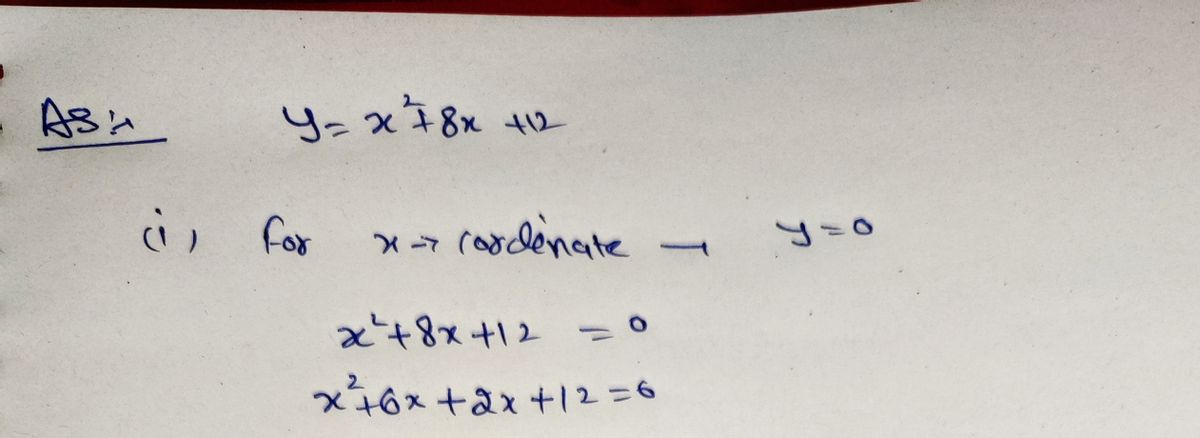 AS:-
y = x² + 8x + 12
(i) for x → cordenate → y = 0
x² + 8x + 12 = 0
x² + 6x + 2x + 12 = 6